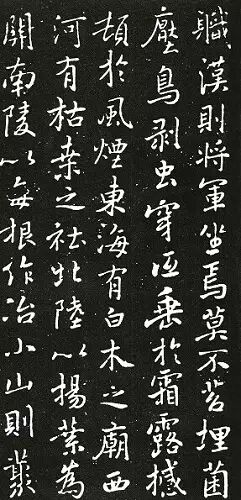 職漢則将軍坐焉莫不苔埋菌
壓鳥剥虫穿低垂於霜露撼
頓於風煙東海有白木之廟西
河有枯桒之社北陸以揚葉為
關南陵以每根作冶小山則叢